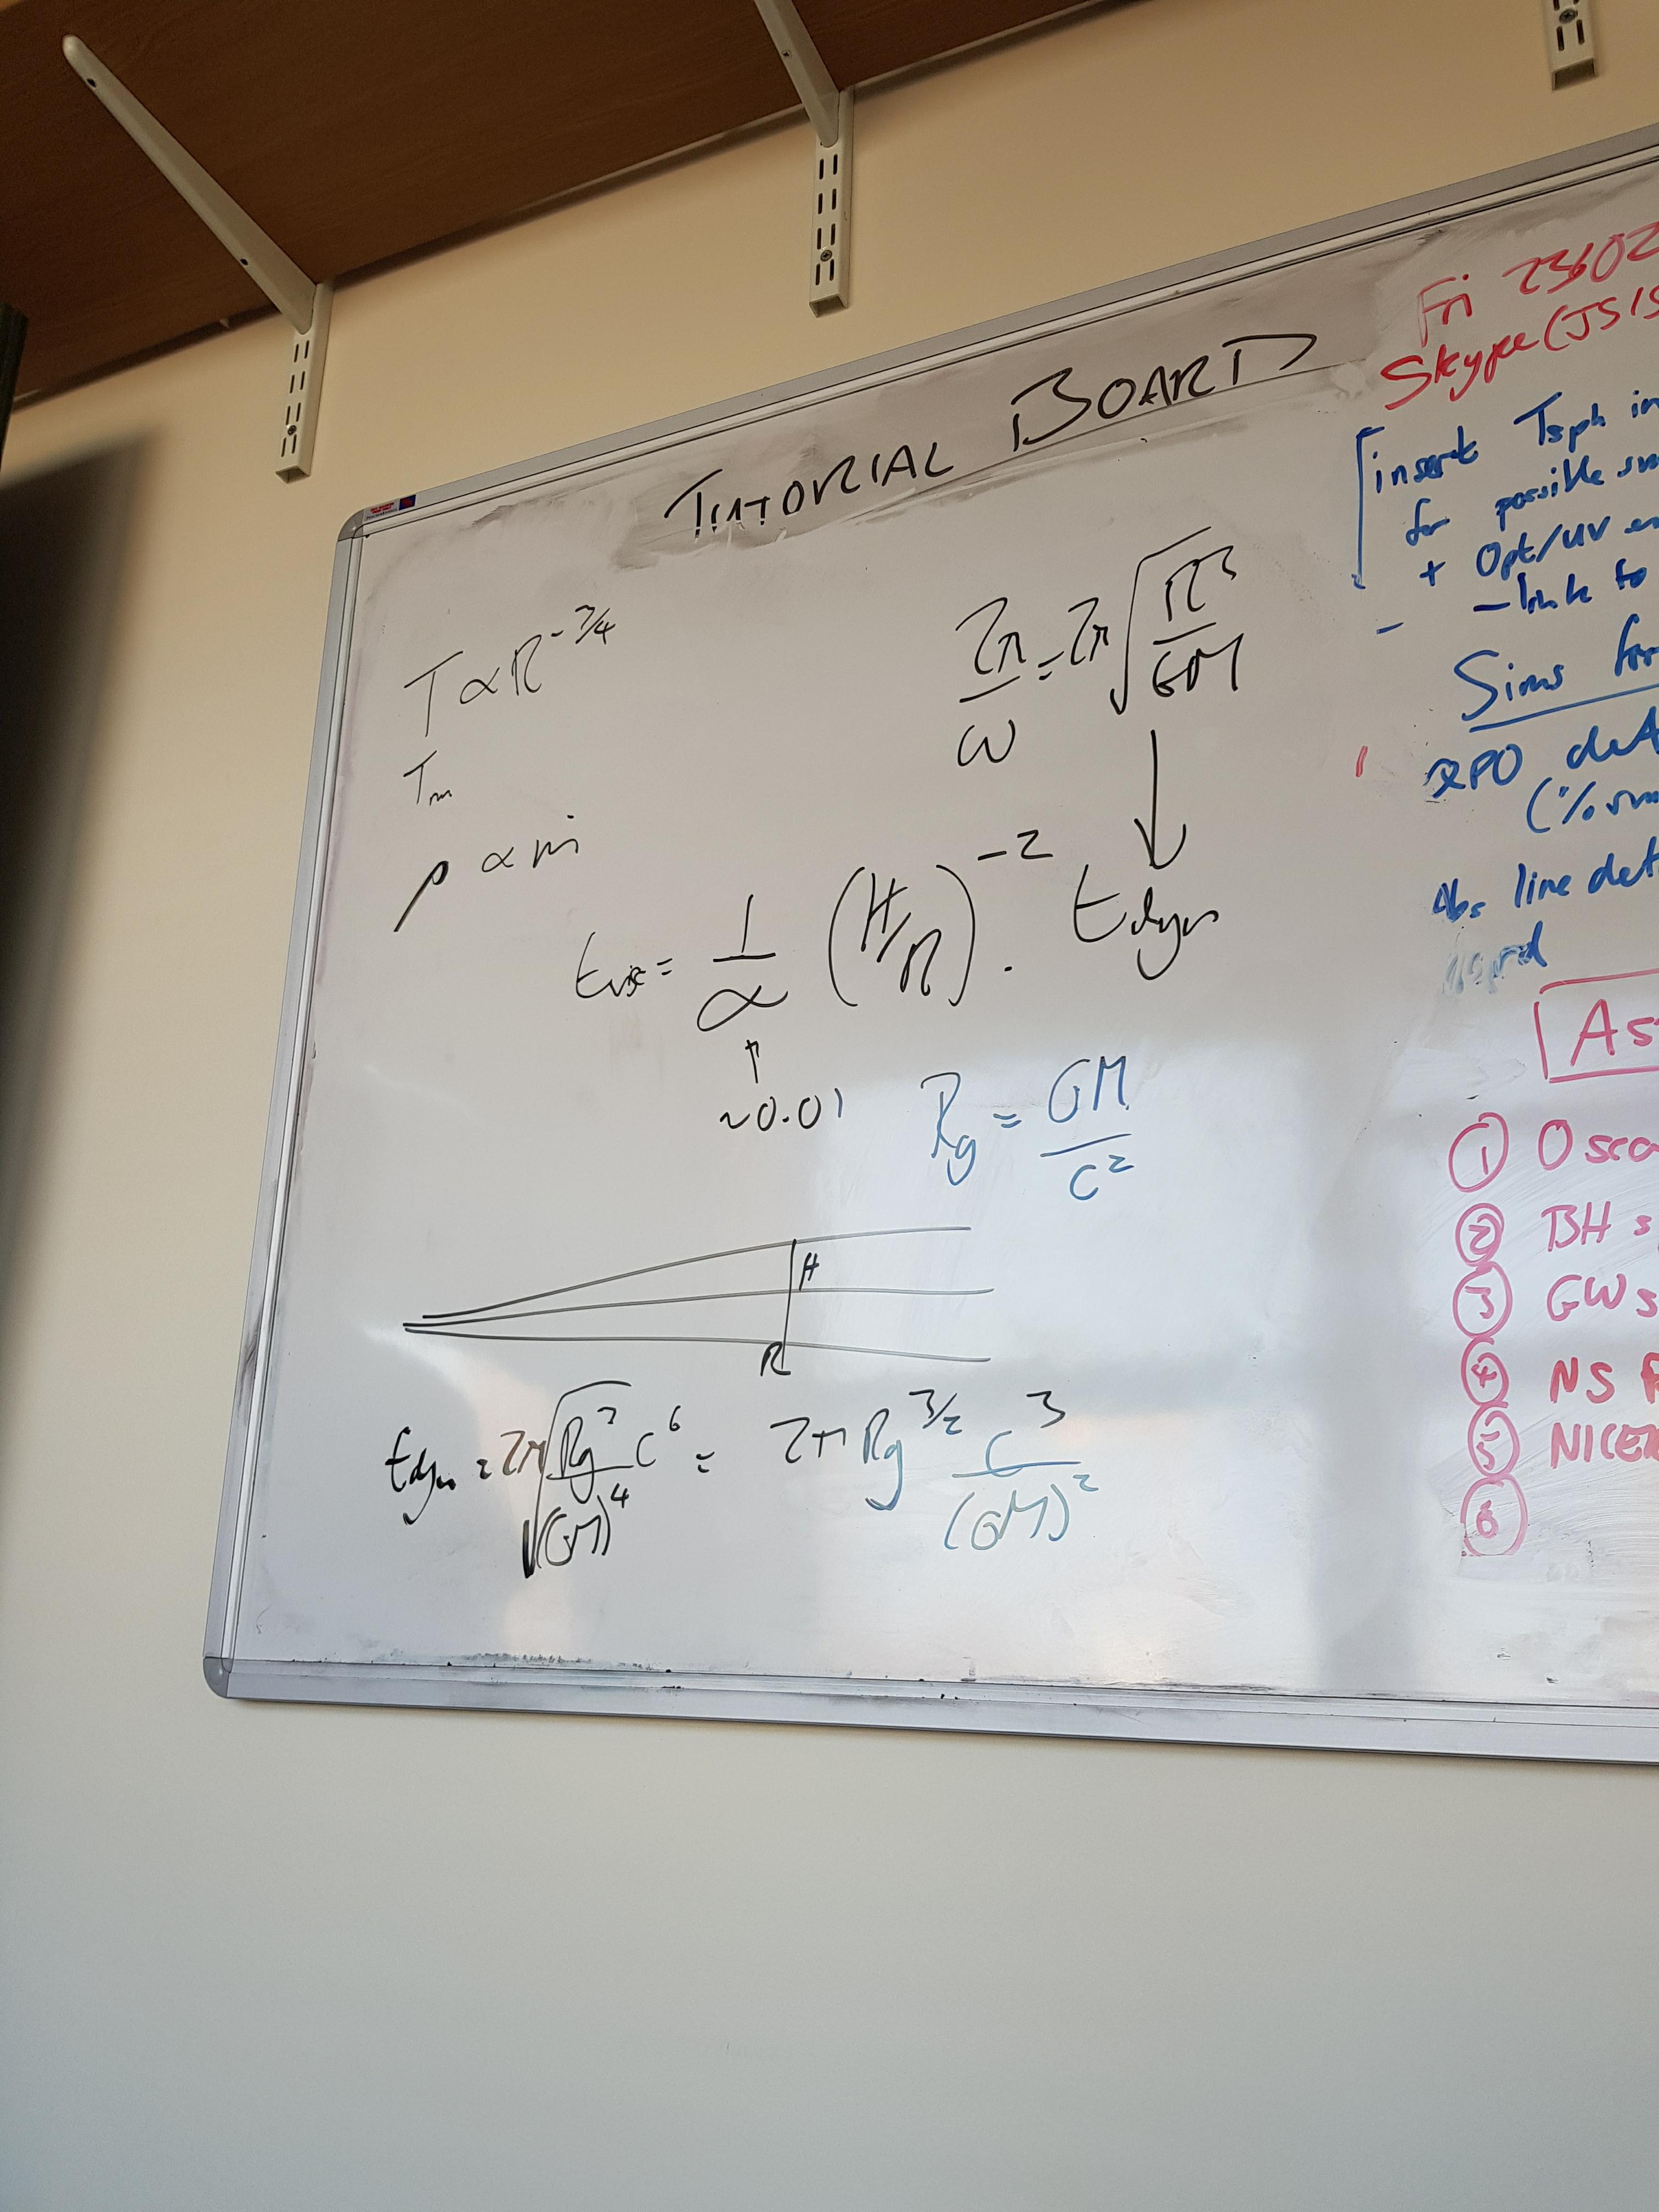 TUTORIAL BOARD
T ∝ R^-3/4
2π/ω = 2π √(R³/GM)
T_m
ρ ∝ ṁ
t_visc = 1/∝ (H/R)^-2 . t_dyn
~0.01
R_g = GM/c²
H
R
t_dyn = 2π √(R_g³ c⁶/(GM)⁴) = 2π R_g^3/2 c³/(GM)²
Fri
Skype (JS
insert Tsph in
for possible
+ Opt/UV
- link to
Sims for
QPO
(%
Abs line det
As
① Osca
② BH s
③ GWs
④ NS
⑤ NICER
⑥